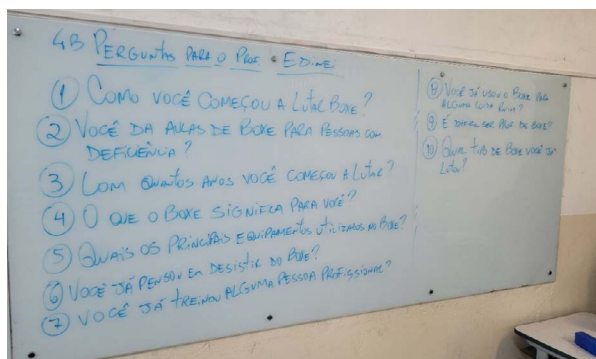 4B PERGUNTAS PARA O PROF. EDINEI
① COMO VOCÊ COMEÇOU A LUTAR BOXE?
② VOCÊ DA AULAS DE BOXE PARA PESSOAS COM
DEFICIÊNCIA?
③ COM QUANTOS ANOS VOCÊ COMEÇOU A LUTAR?
④ O QUE O BOXE SIGNIFICA PARA VOCÊ?
⑤ QUAIS OS PRINCIPAIS EQUIPAMENTOS UTILIZADOS NO BOXE?
⑥ VOCÊ JÁ PENSOU EM DESISTIR DO BOXE?
⑦ VOCÊ JÁ TREINOU ALGUMA PESSOA PROFISSIONAL?
⑧ VOCÊ JÁ USOU O BOXE PARA
ALGUMA COISA RUIM?
⑨ É DIFICIL SER PROF DE BOXE?
⑩ QUAL TIPO DE BOXE VOCÊ JÁ
LUTOU?